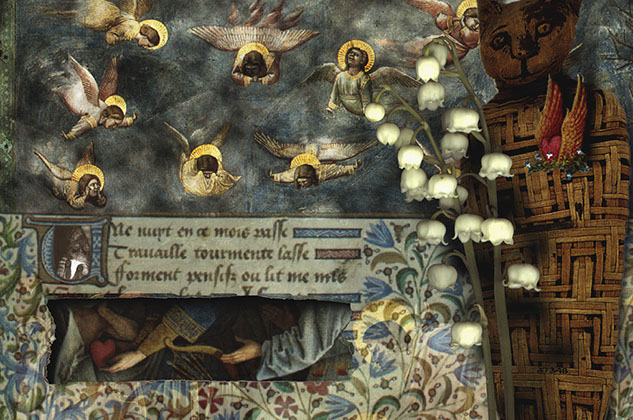 Une nuyt en ce mois passe
Travaille tourmente lasse
fforment pensifz ou lit me mis